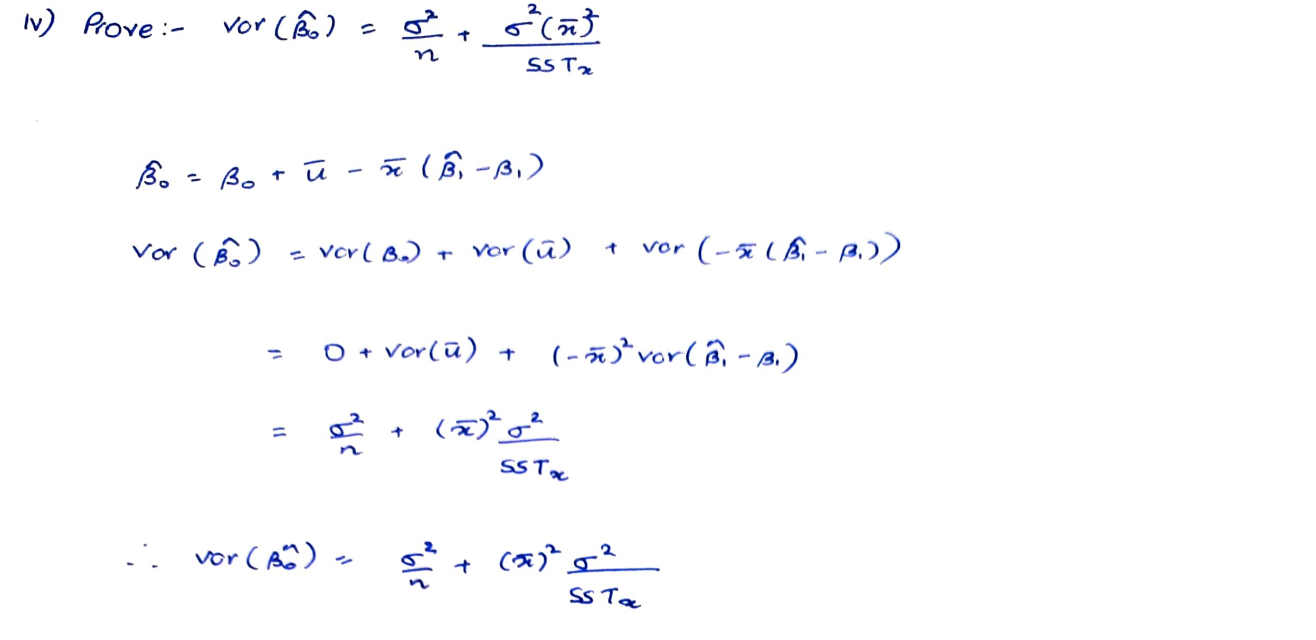 iv) Prove :- var (β̂₀) = σ²/n + σ²(x̄)²/SSTₓ
β̂₀ = β₀ + ū - x̄ (β̂₁ - β₁)
var (β̂₀) = var(β₀) + var(ū) + var (-x̄ (β̂₁ - β₁))
= 0 + var(ū) + (-x̄)² var(β̂₁ - β₁)
= σ²/n + (x̄)² σ²/SSTₓ
∴ var (β̂₀) = σ²/n + (x̄)² σ²/SSTₓ